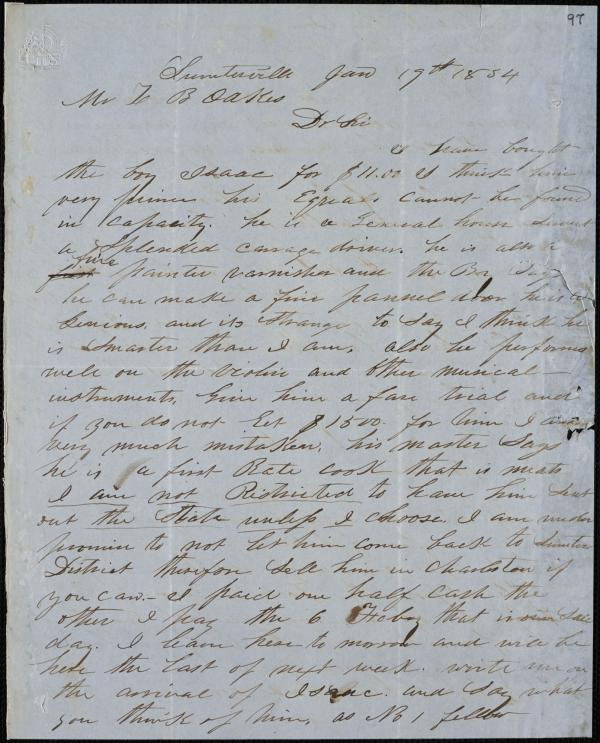 97
Sumterville Jan 19th 1854
Mr Z B Oakes
Dr Sir
I have bought
the boy Isaac for $11.00 I think him
very prime his Equals cannot be found
in capacity. he is a General house Servant
a Splendid carrage driver. he is also a
first fine painter varnisher and the Boy Says
he can make a fine pannel door he is a
Genious. and its Strange to Say I think he
is Smarter than I am. also he performs
well on the violin and other musical
instruments. Give him a fare trial and
if you do not Get $1500. for him I am
very much mistaken, his master Says
he is a first Rate cook that is meats
I am not Ristricted to have him Sent
out the State unless I choose. I am under
promis to not let him come back to Sumter
District therefore Sell him in Charleston if
you can.- I paid one half cash the
other I pay the 6 Feby that is our Sale
day. I leave here to morrow and will be
here the last of next week. write me on
the arrival of Isaac. and Say what
you think of him, as No 1 fellow